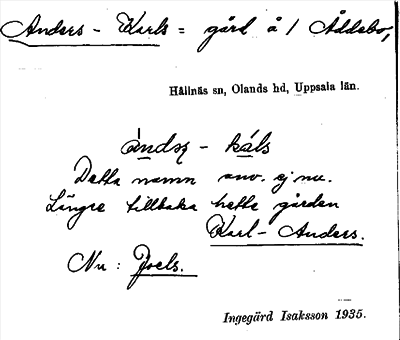 Anders - Karls = gård å / Åddebo,
Hållnäs sn, Olands hd, Uppsala län.
àndsz - káls
Detta namn anv. ej nu.
Längre tillbaka hette gården
Karl - Anders.
Nu : Joels.
Ingegärd Isaksson 1935.